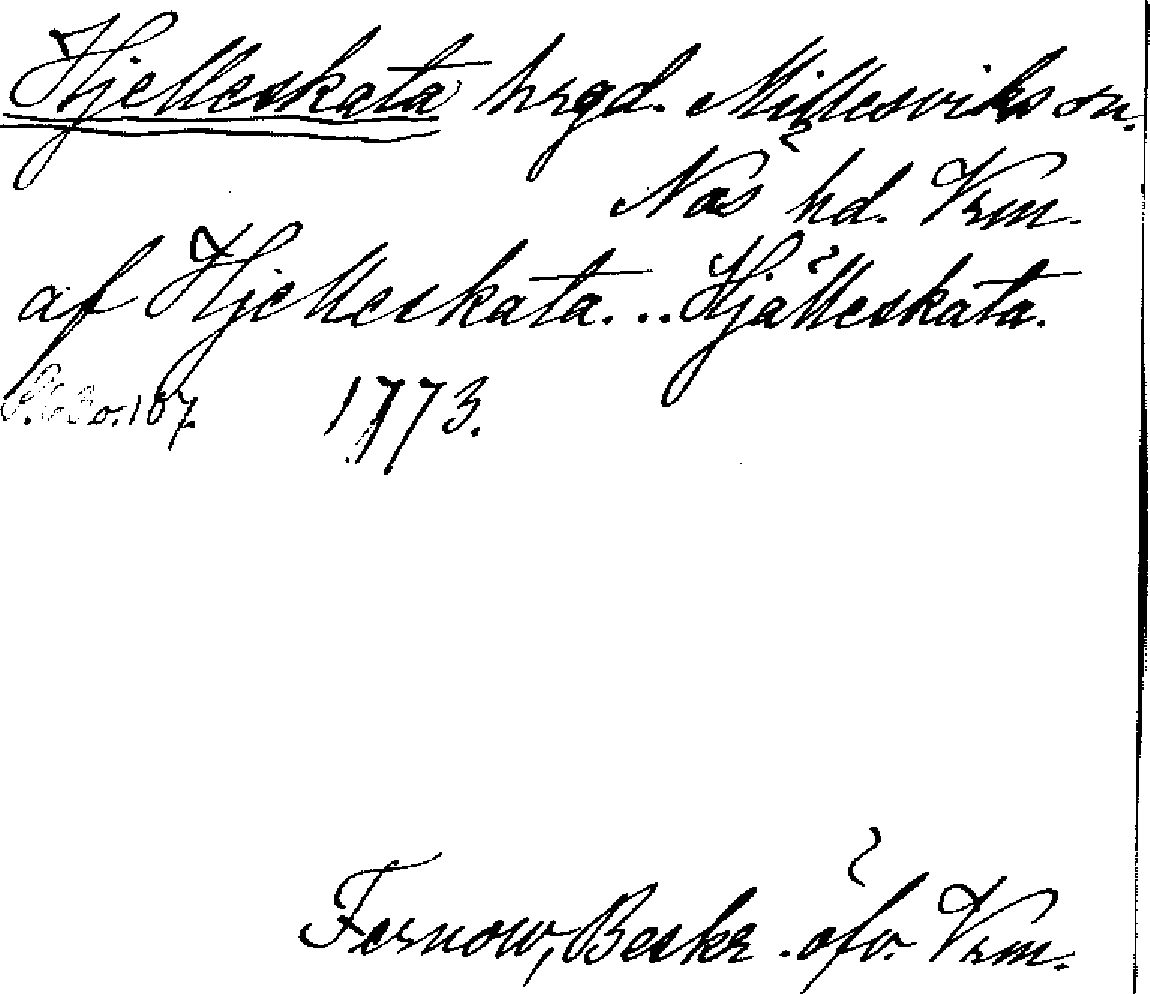 Hjelleskata hrgd. Millesviks sn.
Näs hd. Vrm.
af Hjelleskata... Hjälleskata.
o. 187. 1773.
Fernow, Beskr. öfv. Vrm.